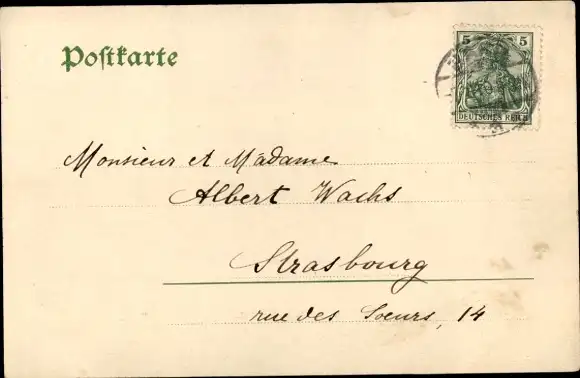 Postkarte
5 5
DEUTSCHES REICH
Monsieur et Madame
Albert Wachs
Strasbourg
rue des Soeurs, 14